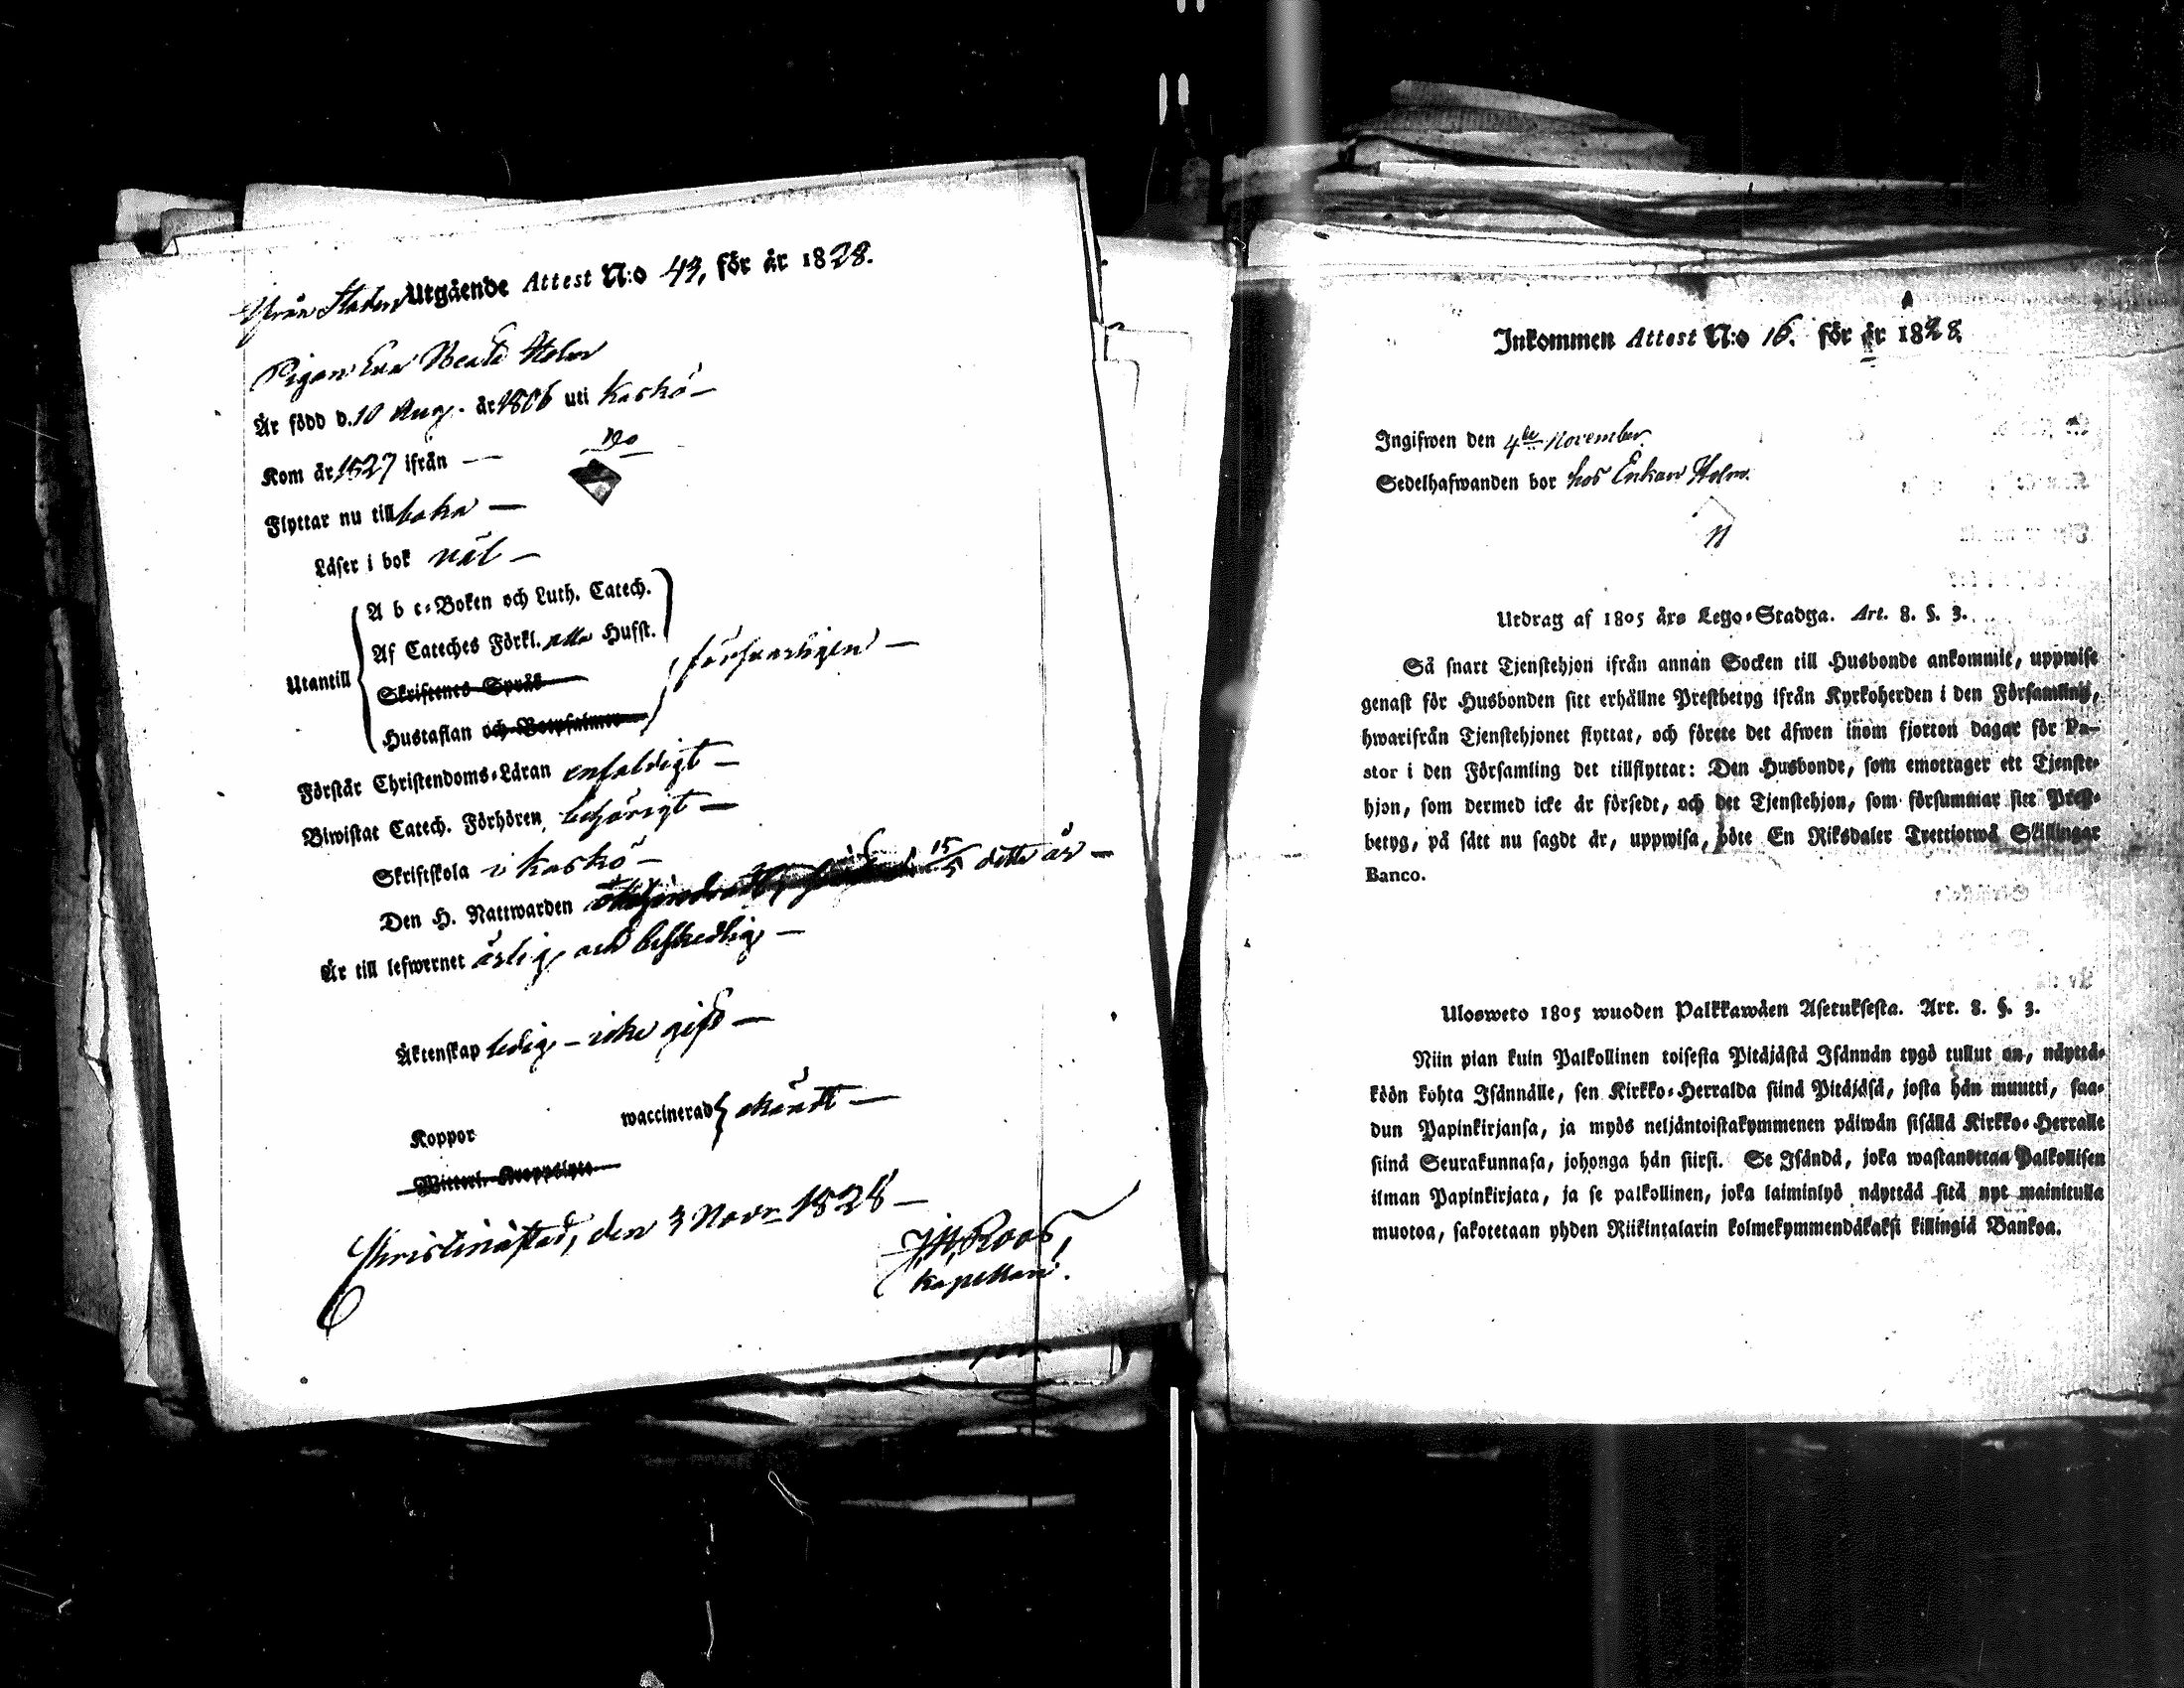 Ifrån Staden Utgående Attest N:o 43, för år 1828.
Pigan Eva Beata Holm
Är född d. 10 Aug. år 1806 uti Kaskö –
Kom år 1827 ifrån — Do
Flyttar nu till baka —
Läser i bok väl —
Utantill
A b c-Boken och Luth. Catech.
Af Cateches Förkl. alla Hufst.
Skriftenes Språk
Hustaflan och Botpsalmer
försvarligen —
Förstår Christendoms-Läran enfaldigt —
Biwistat Catech. Förhören behörigt —
Skriftskola i Kaskö —
Den H. Nattwarden 15/5 detta år —
Är till lefwernet ärlig och beskedlig —
Äktenskap ledig – icke gift —
Koppor waccinerad okändt —
Christinæstad, den 3 Novr 1828 —
J M Roos,
Kapellan.
Inkommen Attest N:o 16. för år 1828
Ingifwen den 4de November.
Sedelhafwanden bor hos Enkan Holm.
11
Utdrag af 1805 års Lego-Stadga. Art. 8. §. 3.
Så snart Tjenstehjon ifrån annan Socken till Husbonde ankommit, uppwise
genast för Husbonden sitt erhållne Prestbetyg ifrån Kyrkoherden i den Församling,
hwarifrån Tjenstehjonet flyttat, och förete det äfwen inom fjorton dagar för Pa-
stor i den Församling det tillflyttat: Den Husbonde, som emottager ett Tjenste-
hjon, som dermed icke är försedt, och det Tjenstehjon, som försummar sitt Prest-
betyg, på sätt nu sagdt är, uppwisa, böte En Riksdaler Trettiotwå Skillingar
Banco.
Ulosweto 1805 wuoden Palkkawäen Asetuksesta. Art. 8. §. 3.
Niin pian kuin Palkollinen toisesta Pitäjästä Isännän tygö tullut on, näyttä-
köön kohta Isännälle, sen Kirkko-Herralda siinä Pitäjäsä, josta hän muutti, saa-
dun Papinkirjansa, ja myös neljäntoistakymmenen päiwän sisällä Kirkko-Herralle
siinä Seurakunnasa, johonga hän siirsi. Se Isändä, joka wastanottaa Palkollisen
ilman Papinkirjata, ja se palkollinen, joka laiminlyö näyttää sitä nyt mainitulla
muotoa, sakotetaan yhden Riikintalarin kolmekymmendäkaksi killingiä Bankoa.